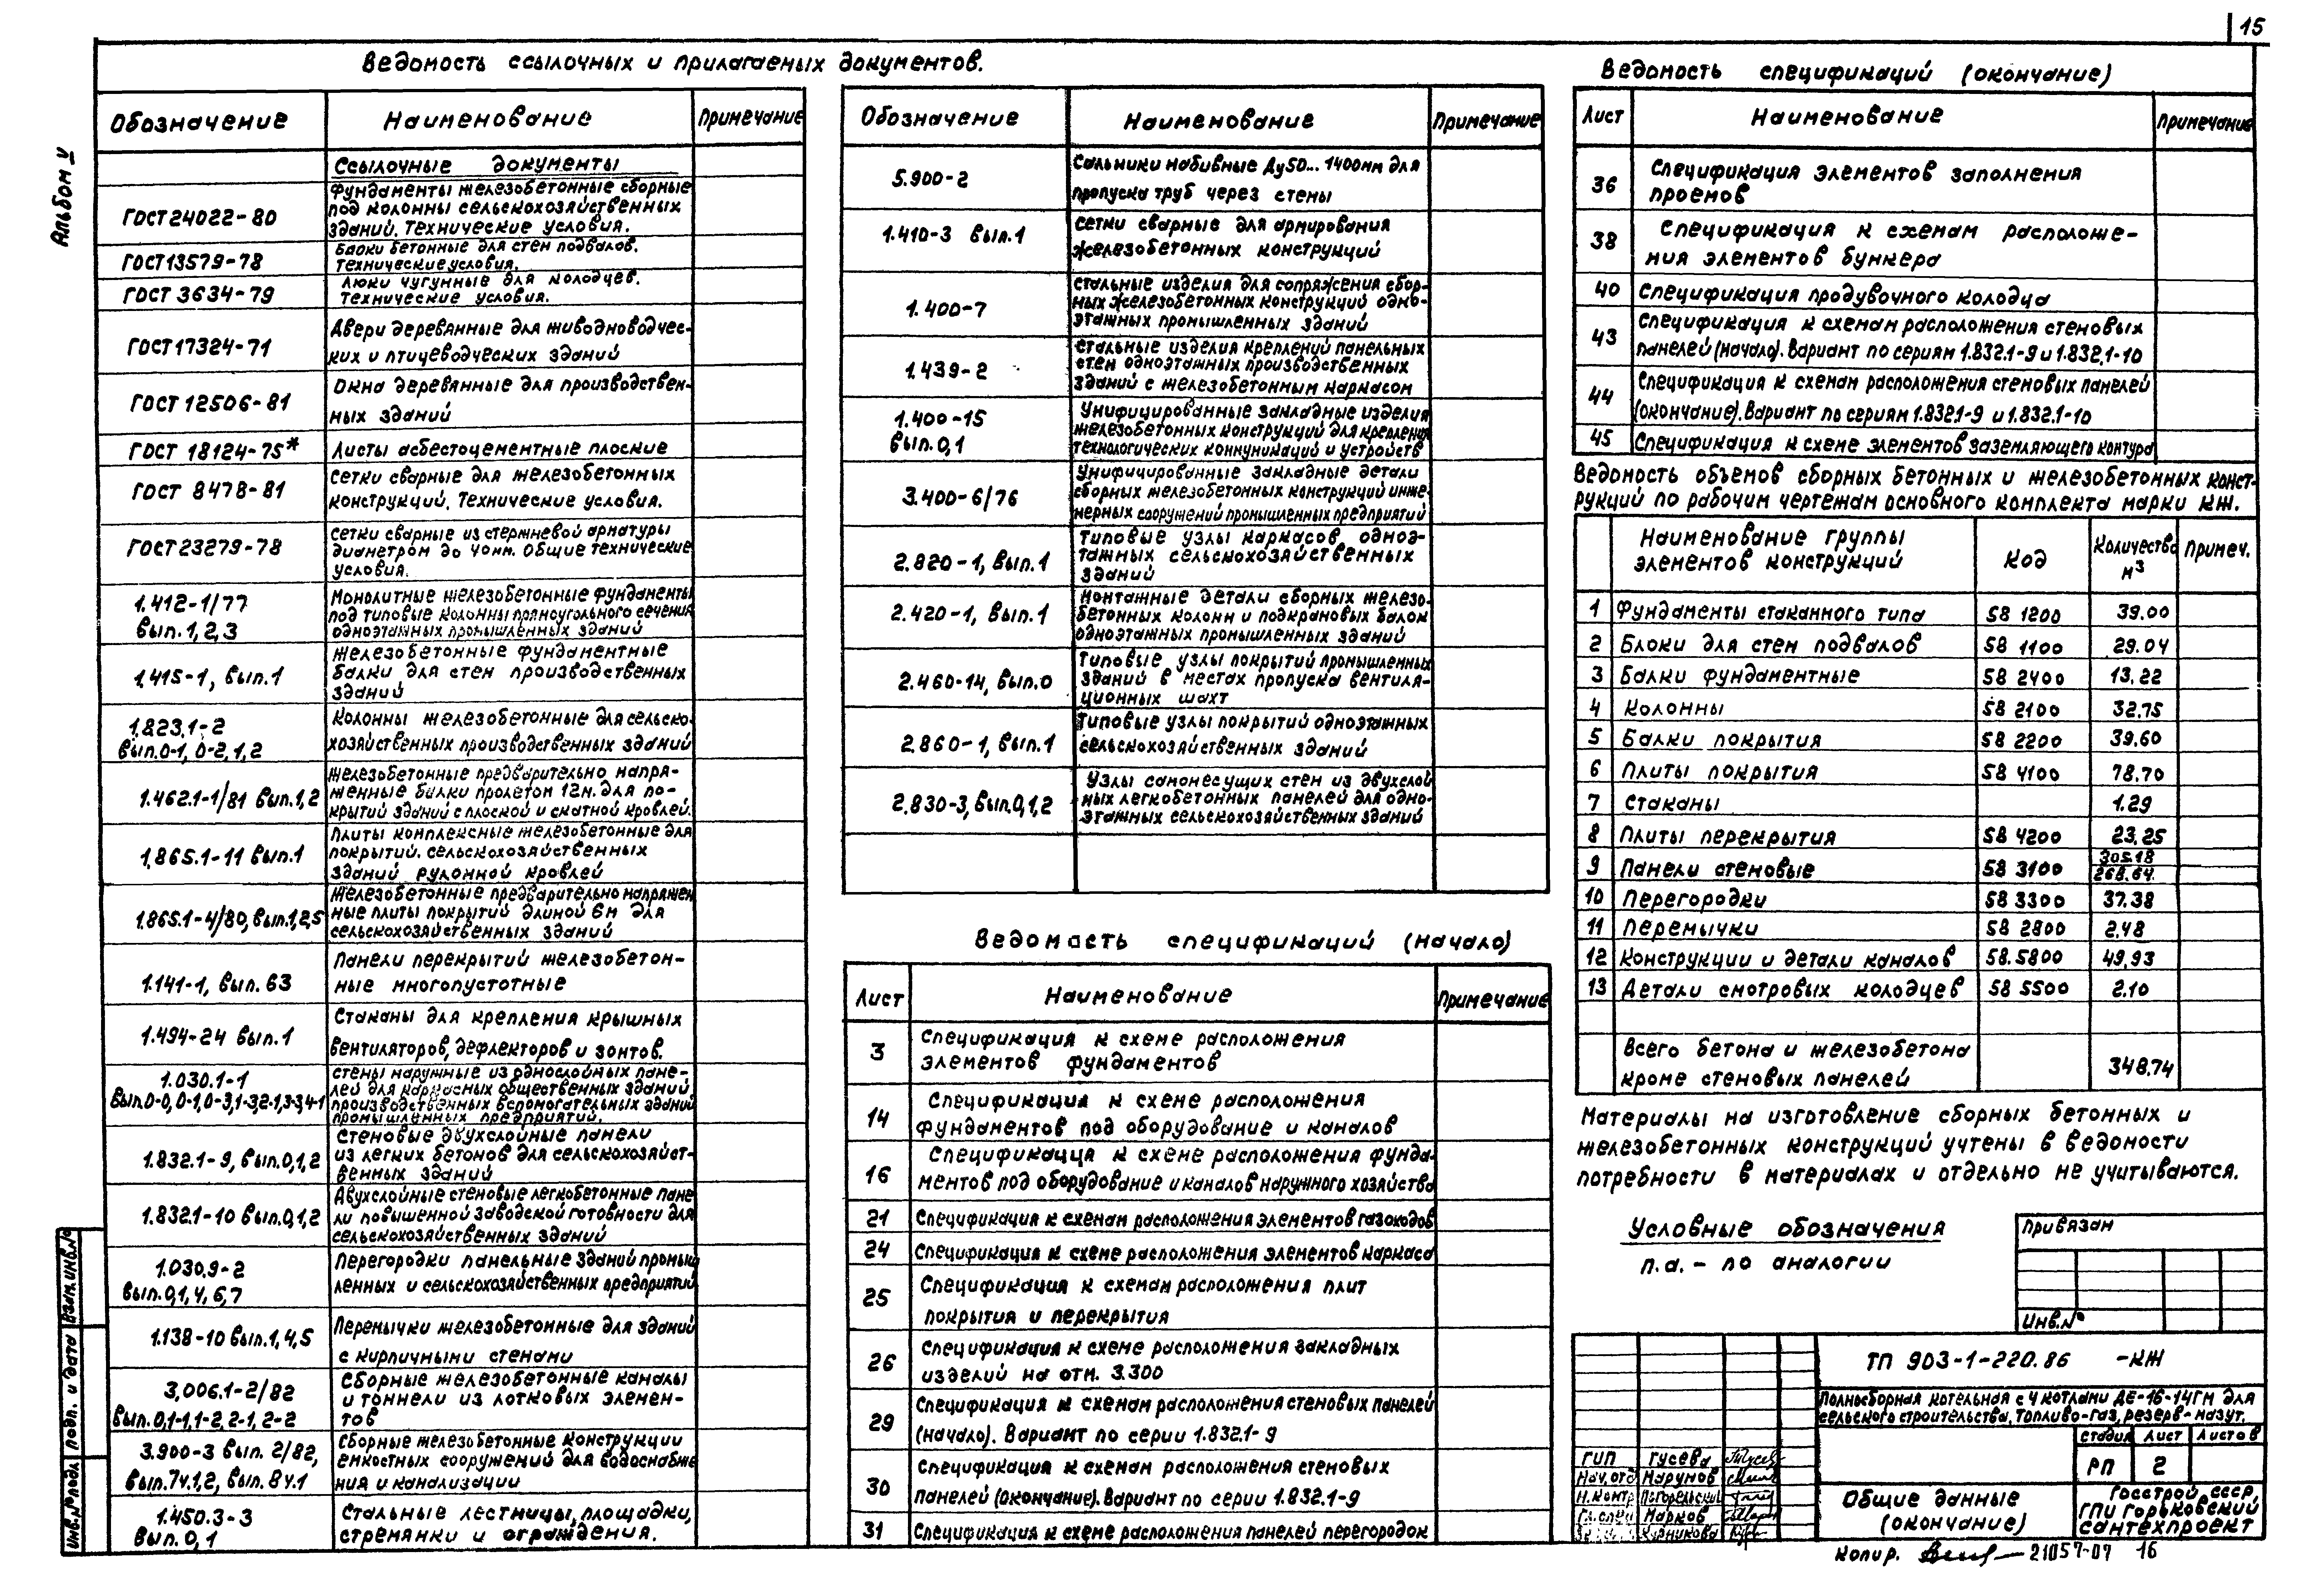 15
Альбом V
Ведомость ссылочных и прилагаемых документов.
Обозначение Наименование Примечание
Ссылочные документы
ГОСТ 24022-80 Фундаменты железобетонные сборные
под колонны сельскохозяйственных
зданий. Технические условия.
ГОСТ 13579-78 Блоки бетонные для стен подвалов.
Технические условия.
ГОСТ 3634-79 Люки чугунные для колодцев.
Технические условия.
ГОСТ 17324-71 Двери деревянные для животноводчес-
ких и птицеводческих зданий
ГОСТ 12506-81 Окна деревянные для производствен-
ных зданий
ГОСТ 18124-75* Листы асбестоцементные плоские
ГОСТ 8478-81 Сетки сварные для железобетонных
конструкций. Технические условия.
ГОСТ 23279-78 Сетки сварные из стержневой арматуры
диаметром до 40мм. Общие технические
условия.
1.412-1/77 Монолитные железобетонные фундаменты
под типовые колонны прямоугольного сечения
вып. 1, 2, 3 одноэтажных промышленных зданий
Железобетонные фундаментные
1.415-1, вып.1 балки для стен производственных
зданий
1.823.1-2 Колонны железобетонные для сельско-
вып.0-1, 0-2, 1, 2 хозяйственных производственных зданий
Железобетонные предварительно напря-
1.462.1-1/81 вып.1,2 женные балки пролетом 12м. для по-
крытий зданий с плоской и скатной кровлей.
Плиты комплексные железобетонные для
1.865.1-11 вып.1 покрытий. сельскохозяйственных
зданий рулонной кровлей
Железобетонные предварительно напряжен
1.865.1-4/80, вып.1,2,5 ные плиты покрытий длиной 6м для
сельскохозяйственных зданий
1.141-1, вып. 63 Панели перекрытий железобетон-
ные многопустотные
1.494-24 вып.1 Стаканы для крепления крышных
вентиляторов, дефлекторов и зонтов.
1.030.1-1 Стены наружные из однослойных пане-
лей для каркасных общественных зданий,
вып.0-0, 0-1, 0-3, 1-3, 2-1, 3-3, 4-1 производственных вспомогательных зданий
промышленных предприятий.
Стеновые двухслойные панели
1.832.1-9, вып.0,1,2 из легких бетонов для сельскохозяйст-
венных зданий
Двухслойные стеновые легкобетонные пане
1.832.1-10 вып.0,1,2 ли повышенной заводской готовности для
сельскохозяйственных зданий
1.030.9-2 Перегородки панельные зданий промыш
вып.0,1,4,6,7 ленных и сельскохозяйственных предприятий
1.138-10 вып.1,4,5 Перемычки железобетонные для зданий
с кирпичными стенами
3.006.1-2/82 Сборные железобетонные каналы
и тоннели из лотковых элемен-
вып.0,1-1,1-2,2-1,2-2 тов
3.900-3 вып. 2/82, Сборные железобетонные конструкции
емкостных сооружений для водоснабже
вып.7ч.1,2, вып. 8ч.1 ния и канализации
1.450.3-3 Стальные лестницы, площадки,
вып. 0,1 стремянки и ограждения.
Обозначение Наименование Примечание
5.900-2 Сальники набивные Ду50... 1400мм для
пропуска труб через стены
1.410-3 вып.1 Сетки сварные для армирования
железобетонных конструкций
Стальные изделия для сопряжения сбор-
1.400-7 ных железобетонных конструкций одно-
этажных промышленных зданий
Стальные изделия креплений панельных
1.439-2 стен одноэтажных производственных
зданий с железобетонным каркасом
1.400-15 Унифицированные закладные изделия
вып.0,1 железобетонных конструкций для крепления
технологических коммуникаций и устройств
Унифицированные закладные детали
3.400-6/76 сборных железобетонных конструкций инже-
нерных сооружений промышленных предприятий
Типовые узлы каркасов одноэ-
2.820-1, вып.1 тажных сельскохозяйственных
зданий
Монтажные детали сборных железо-
2.420-1, вып.1 бетонных колонн и подкрановых балок
одноэтажных промышленных зданий
Типовые узлы покрытий промышленных
2.460-14, вып.0 зданий в местах пропуска вентиля-
ционных шахт
Типовые узлы покрытий одноэтажных
2.860-1, вып.1 сельскохозяйственных зданий
Узлы самонесущих стен из двухслой
2.830-3, вып.0,1,2 ных легкобетонных панелей для одно-
этажных сельскохозяйственных зданий
Ведомасть спецификаций (начало)
Лист Наименование Примечание
3 Спецификация к схеме расположения
элементов фундаментов
14 Спецификация к схеме расположения
фундаментов под оборудование и каналов
16 Спецификация к схеме расположения фунда-
ментов под оборудование и каналов наружного хозяйства
21 Спецификация к схемам расположения элементов газоходов
24 Спецификация к схеме расположения элементов каркаса
25 Спецификация к схемам расположения плит
покрытия и перекрытия
26 Спецификация к схеме расположения закладных
изделий на отм. 3.300
29 Спецификация к схемам расположения стеновых панелей
(начало). Вариант по серии 1.832.1-9
30 Спецификация к схемам расположения стеновых
панелей (окончание). Вариант по серии 1.832.1-9
31 Спецификация к схеме расположения панелей перегородок
Ведомость спецификаций (окончание)
Лист Наименование Примечание
36 Спецификация элементов заполнения
проемов
38 Спецификация к схемам расположе-
ния элементов бункера
40 Спецификация продувочного колодца
43 Спецификация к схемам расположения стеновых
панелей (начало). Вариант по сериям 1.832.1-9 и 1.832.1-10
44 Спецификация к схемам расположения стеновых панелей
(окончание). Вариант по сериям 1.832.1-9 и 1.832.1-10
45 Спецификация к схеме элементов заземляющего контура
Ведомость объемов сборных бетонных и железобетонных конст-
рукций по рабочим чертежам основного комплекта марки КЖ.
Наименование группы
элементов конструкций Код Количество м3 Примеч.
1 Фундаменты стаканного типа 58 1200 39.00
2 Блоки для стен подвалов 58 1100 29.04
3 Балки фундаментные 58 2400 13.22
4 Колонны 58 2100 32.75
5 Балки покрытия 58 2200 39.60
6 Плиты покрытия 58 4100 78.70
7 Стаканы 1.29
8 Плиты перекрытия 58 4200 23.25
9 Панели стеновые 58 3100 305.18
268.64.
10 Перегородки 58 3300 37.38
11 Перемычки 58 2800 2.48
12 Конструкции и детали каналов 58.5800 49.93
13 Детали смотровых колодцев 58 5500 2.10
Всего бетона и железобетона
кроме стеновых панелей 348.74
Материалы на изготовление сборных бетонных и
железобетонных конструкций учтены в ведомости
потребности в материалах и отдельно не учитываются.
Условные обозначения
п.а. - по аналогии
Привязан
Инв.№
ТП 903-1-220.86 -КЖ
Полносборная котельная с 4 котлами ДЕ-16-14ГМ для
сельского строительства. Топливо-газ, резерв-мазут.
Стадия Лист Листов
РП 2
Общие данные
(окончание)
Госстрой СССР,
ГПИ Горьковский
Сантехпроект
ГИП Гусева
Нач.отд Марунов
Н.контр Погорельский
Гл.спец Марков
Копир. 21057-07 16
Взам.инв.№
Подп. и дата
Инв.№ подл